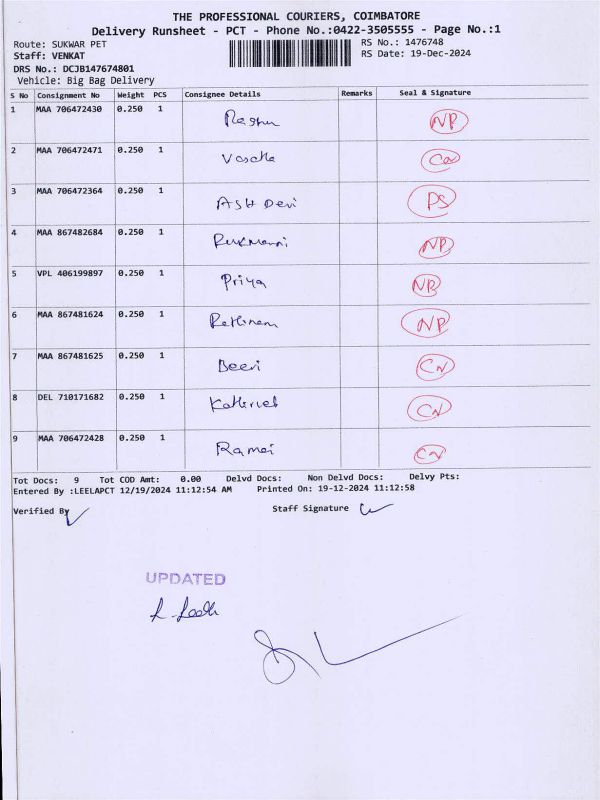 THE PROFESSIONAL COURIERS, COIMBATORE
Delivery Runsheet - PCT - Phone No.:0422-3505555 - Page No.:1
Route: SUKWAR PET RS No.: 1476748
Staff: VENKAT RS Date: 19-Dec-2024
DRS No.: DCJB147674801
Vehicle: Big Bag Delivery
S No Consignment No Weight PCS Consignee Details Remarks Seal & Signature
1 MAA 706472430 0.250 1 NP
2 MAA 706472471 0.250 1
3 MAA 706472364 0.250 1 Devi PS
4 MAA 867482684 0.250 1 NP
5 VPL 406199897 0.250 1 Priya
6 MAA 867481624 0.250 1 NP
7 MAA 867481625 0.250 1 CN
8 DEL 710171682 0.250 1 CN
9 MAA 706472428 0.250 1 CN
Tot Docs: 9 Tot COD Amt: 0.00 Delvd Docs: Non Delvd Docs: Delvy Pts:
Entered By :LEELAPCT 12/19/2024 11:12:54 AM Printed On: 19-12-2024 11:12:58
Verified By Staff Signature
UPDATED